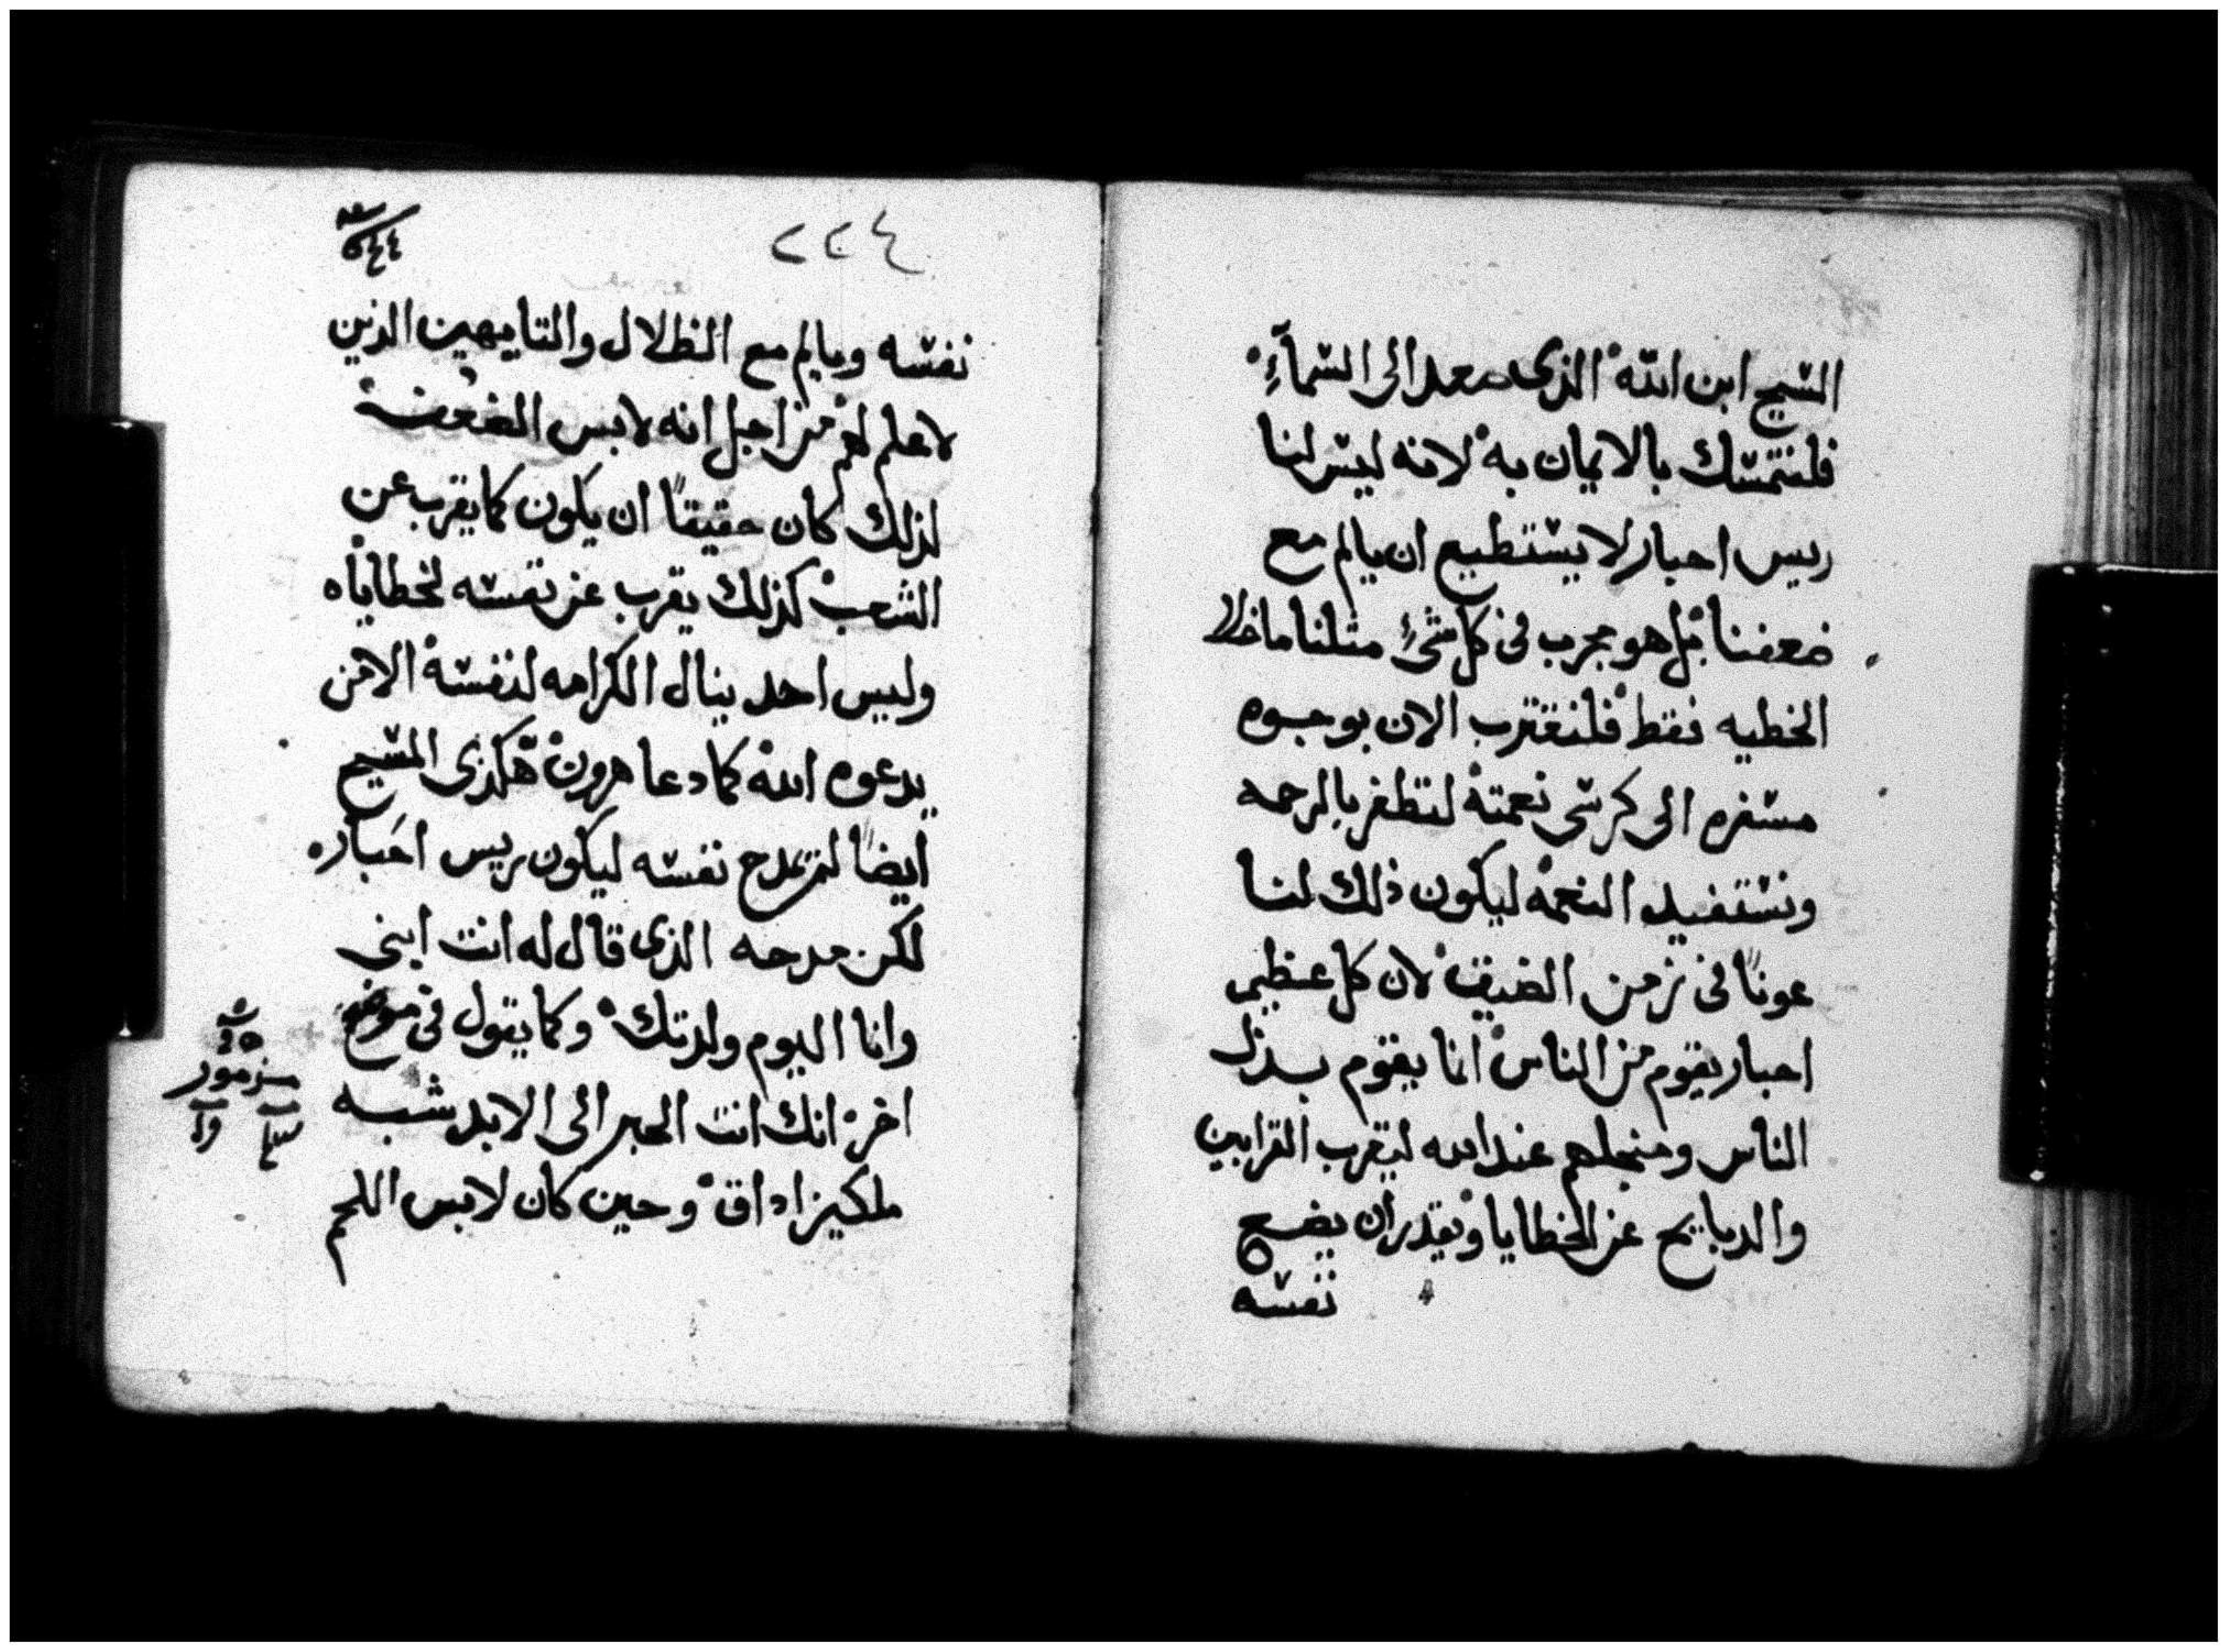 المسيح ابن الله الذى صعد الى السمآءِ
فلنتمسك بالايمان به لانه ليس لنا
ريس احبار لا يستطيع ان يالم مع
ضعفنا بل هو مجرب فى كل شىءٍ مثلنا ما خلا
الخطيه فقط فلنقترب الان بوجوه
مسفره الى كرسى نعمته لنظفر بالرحمه
ونستفيد النعمه ليكون ذلك لنا
عونًا فى زمن الضيق لان كل عظيم
احبار يقوم من الناس انما يقوم بدل
الناس ومنجلهم عند الله ليقرب القرابين
والدبايح عن الخطايا ويقدر ان يضع
نفسه
٢٢٤
نفسه ويالم مع الظلال والتايهين الذين
لا علم لهم من اجل انه لابس الضعف
لذلك كان حقيقًا ان يكون كما يقرب عن
الشعب كذلك يقرب عن نفسه لخطاياه
وليس احد ينال الكرامه لنفسه الا من
يدعوه الله كما دعا هرون هكذى المسيح
ايضًا لم يمدح نفسه ليكون ريس احبار
لكن مدحه الذى قال له انت ابنى
وانا اليوم ولدتك وكما يقول فى موضع
اخر انك انت الحبر الى الابد شبه
ملكيزاداق وحين كان لابس اللحم
مزمور